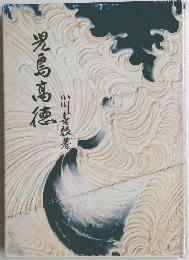 児島高徳
小川喜数著